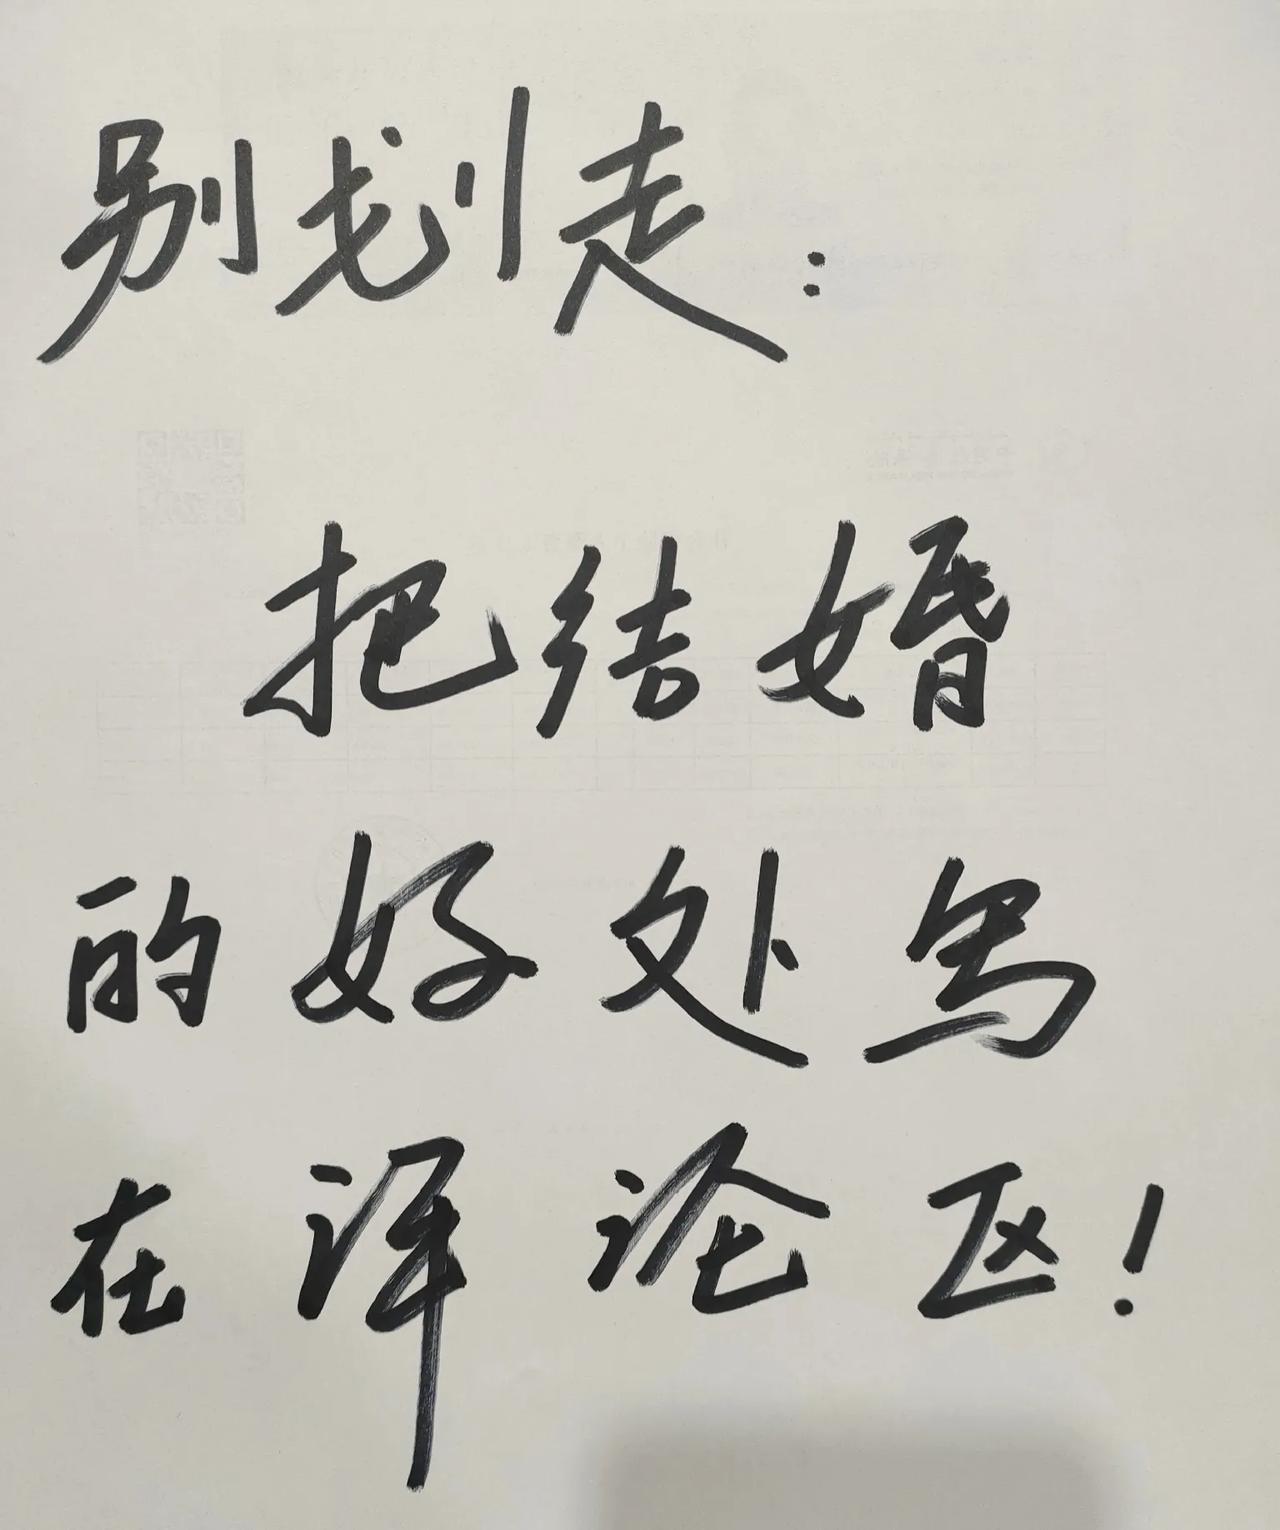 别划走：
把结婚
的好处写
在评论区！